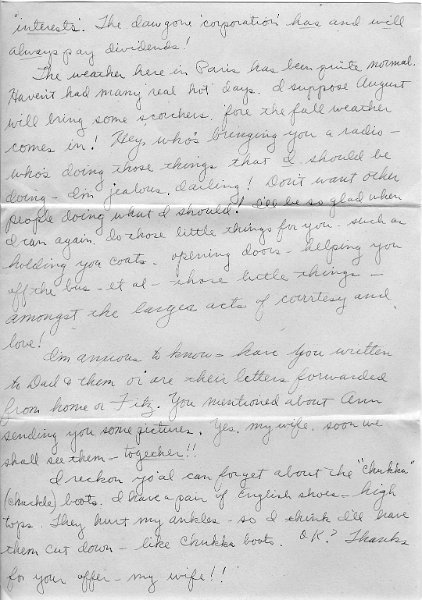 "interests". The dawgone "corporation" has and will
always pay dividends!
The weather here in Paris has been quite normal.
Haven't had many real hot days. I suppose August
will bring some scorchers, 'fore the fall weather
comes in! Hey, who's bringing you a radio –
who's doing those things that I should be
doing – I'm jealous, darling! Don't want other
people doing what I should! I'll be so glad when
I can again do those little things for you – such as
holding you coats – opening doors – helping you
off the bus – et al – those little things –
amongst the larger acts of courtesy and
love!
I'm anxious to know – have you written
to Dad & them or are their letters forwarded
from home or Fitz. You mentioned about Ann
sending you some pictures. Yes, my wife, soon we
shall see them – together!!
I reckon yo'al can forget about the "Chukka"
(chuckle) boots. I have a pair of English shoes – high
tops. They hurt my ankles – so I think I'll have
them cut down – like Chukka boots. O.K.? Thanks
for your offer – my wife!!